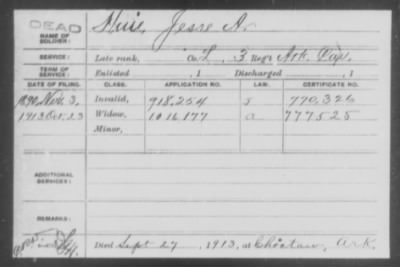 DEAD
NAME OF SOLDIER: Huie, Jesse A.
SERVICE: Late rank, Co. L, 3 Reg't Ark. Cav.
TERM OF SERVICE: Enlisted , 1 Discharged , 1
DATE OF FILING. CLASS. APPLICATION NO. LAW. CERTIFICATE NO.
1890, Nov. 3, Invalid, 918,254 770,326
1913 Oct. 23 Widow, 1016177 a 777525
Minor,
ADDITIONAL SERVICES:
REMARKS:
Died Sept 27, 1913, at Choctaw, Ark.